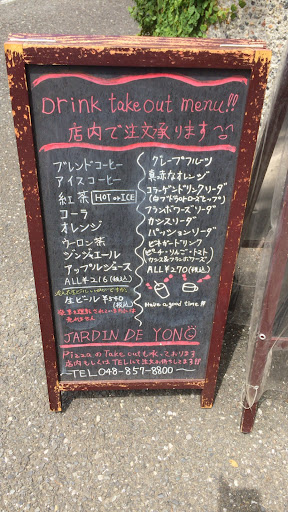 Drink takeout menu!!
店内で注文承ります
ブレンドコーヒー
アイスコーヒー
紅茶 HOT or ICE
コーラ
オレンジ
ウーロン茶
ジンジャエール
アップルジュース
ALL ¥216(税込)
生ビール ¥540
(税込)
グレープフルーツ
真っ赤なオレンジ
コラーゲンドリンクソーダ
フランボワーズソーダ
カシスソーダ
パッションソーダ
ビネガードリンク
(ピーチ・りんご・トマト
カシス&フランボワーズ)
ALL ¥270(税込)
Have a good time!!
JARDIN DE YONO
Pizzaのtake outも承っております
店内もしくはTELにて注文お待ちしてます
TEL 048-857-8800